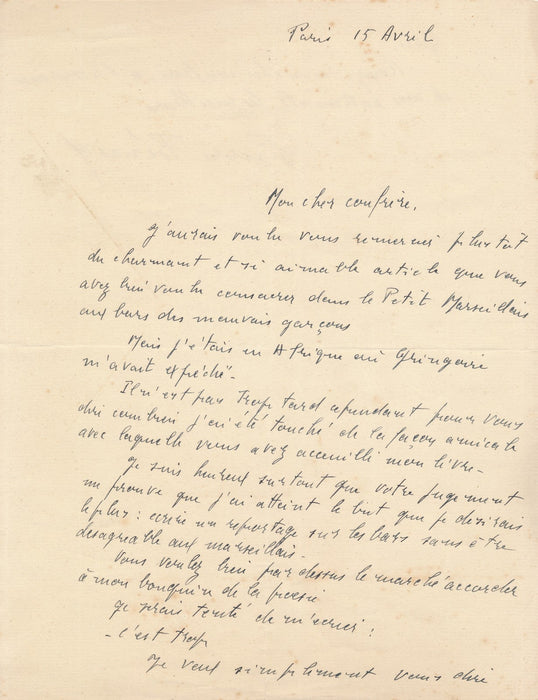 Paris 15 Avril
Mon cher confrère,
J'aurais voulu vous remercier plus tôt
du charmant et si aimable article que vous
avez bien voulu consacrer dans le Petit Marseillais
aux bars des mauvais garçons
Mais j'étais en Afrique où Gringoire
m'avait expédié.
Il n'est pas trop tard cependant pour vous
dire combien j'ai été touché de la façon amicale
avec laquelle vous avez accueilli mon livre.
Je suis heureux surtout que votre jugement
me prouve que j'ai atteint le but que je désirais
le plus : écrire un reportage sur les bars sans être
désagréable aux marseillais.
Vous voulez bien par dessus le marché accorder
à mon bouquin de la poésie
Je serais tenté de m'écrier :
- C'est trop
Je veux simplement vous dire